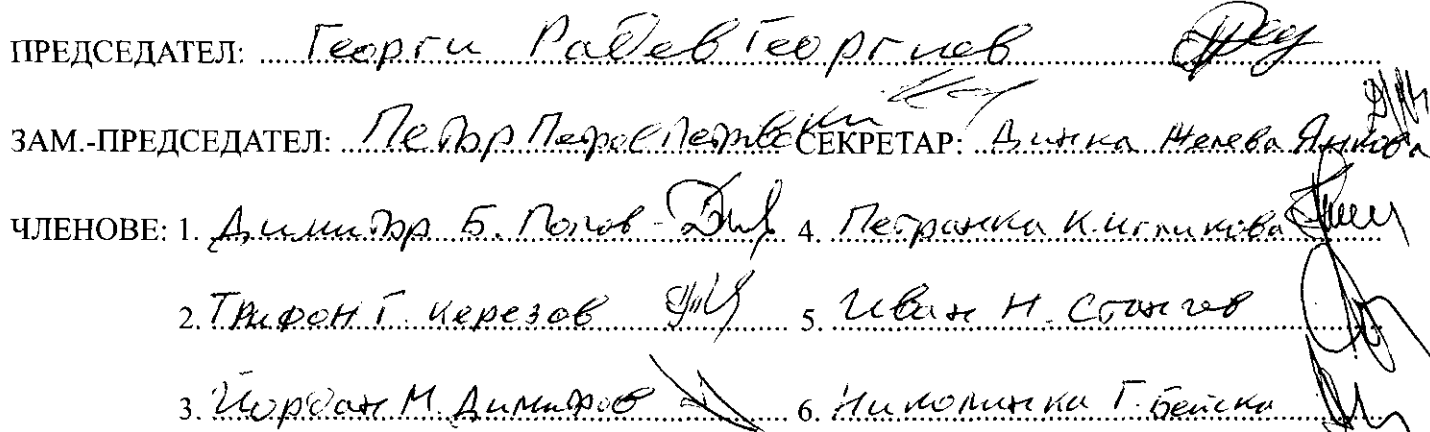 ПРЕДСЕДАТЕЛ: Георги Радев Георгиев
ЗАМ.-ПРЕДСЕДАТЕЛ: Петър Петров Петровски СЕКРЕТАР: Динка Желева Янкова
ЧЛЕНОВЕ: 1. Димитър Б. Попов - 4. Петранка К. Игликова
2. Трифон Г. Керезов 5. Иван Н. Станчев
3. Йордан М. Димитров 6. Николинка Г. Бейска